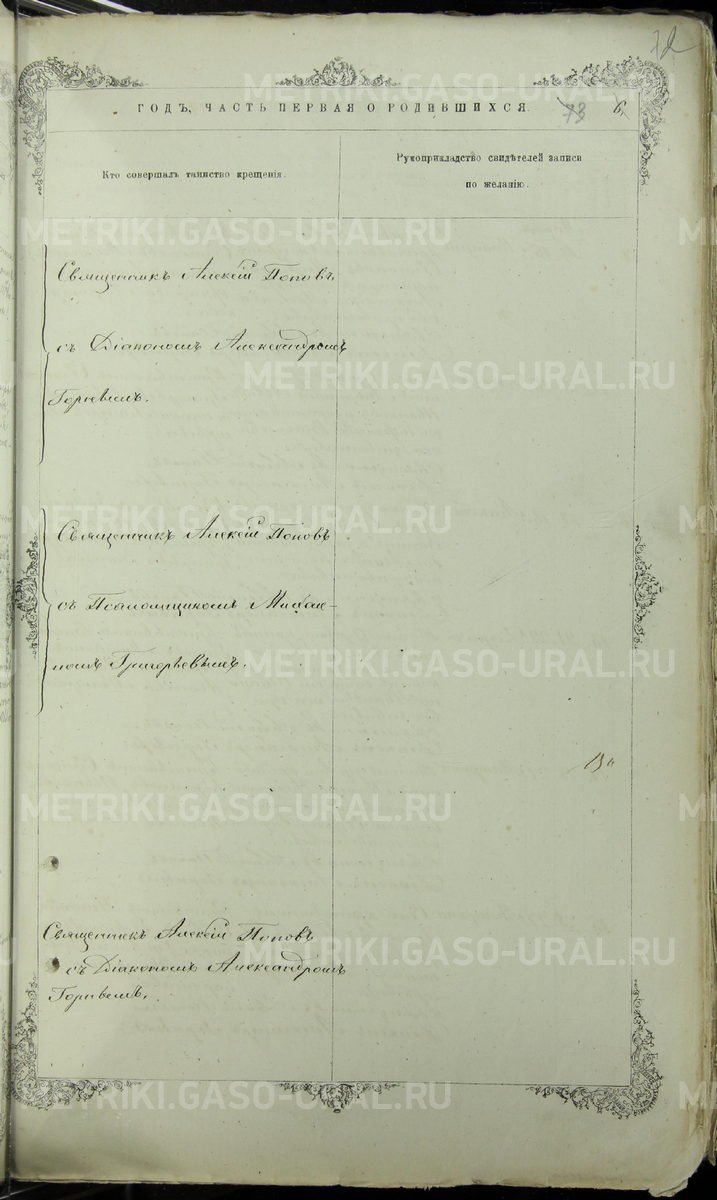 ГОДЪ, ЧАСТЬ ПЕРВАЯ О РОДИВШИХСЯ. 78
Кто совершалъ таинство крещенія
Рукоприкладство свидѣтелей записи
по желанію.
Священникъ Алексій Поповъ
съ Діакономъ Александромъ
Священникъ Алексій Поповъ
съ Псаломщикомъ
Григорьевымъ.
Священникъ Алексій Поповъ
съ Діакономъ Александромъ
METRIKI.GASO-URAL.RU